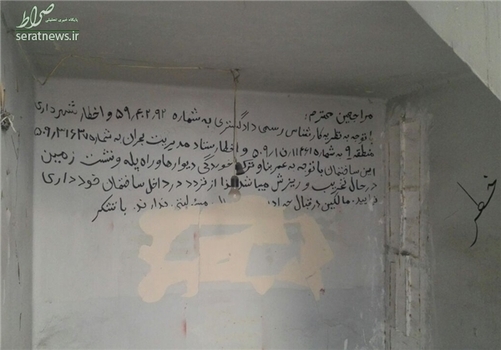 صراط
پایگاه خبری تحلیلی
seratnews.ir
مراجعین محترم:
با توجه به نظریه کارشناس رسمی دادگستری به شماره ۵۹٫۴۰۲٫۹۲ و اخطار شهرداری
منطقه ۹ به شماره و اخطار ستاد مدیریت بحران به شماره
این ساختمان با توجه به عمر بنا و ترک خوردگی دیوارها و راه پله و نشت زمین
در حال تخریب و ریزش میباشد لذا از تردد در داخل ساختمان خودداری
نمایید. مالکین در قبال مسئولیتی ندارند. با تشکر
خطر